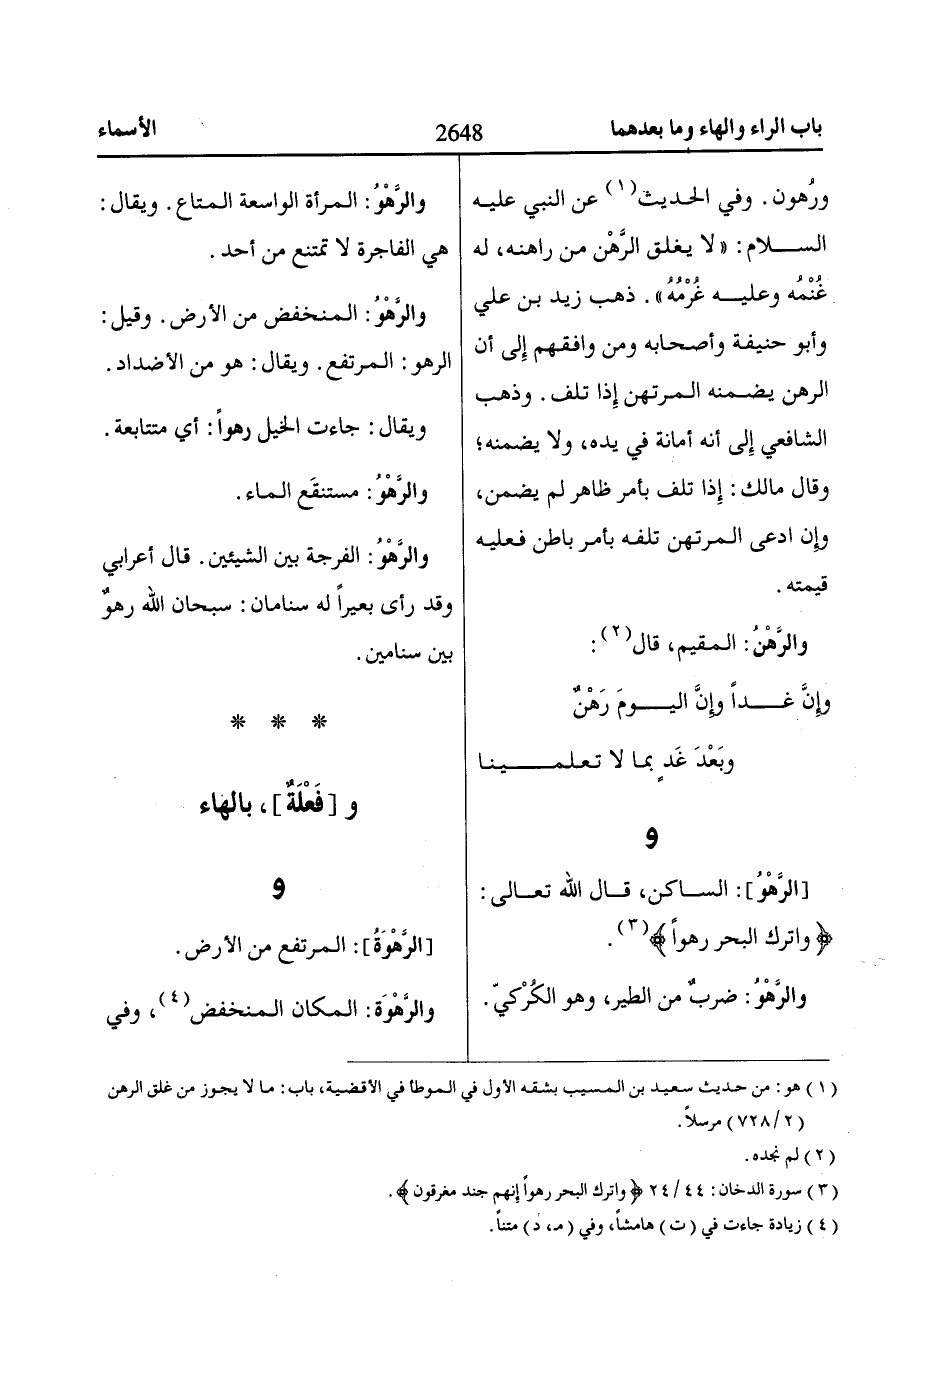 باب الراء والهاء وما بعدهما 2648 الأسماء
ورُهون. وفي الحديث(١) عن النبي عليه
السلام: «لا يغلق الرَّهْن من راهنه، له
غُنْمُه وعليه غُرْمُهُ». ذهب زيد بن علي
وأبو حنيفة وأصحابه ومن وافقهم إلى أن
الرهن يضمنه المرتهن إذا تلف. وذهب
الشافعي إلى أنه أمانة في يده، ولا يضمنه؛
وقال مالك: إذا تلف بأمر ظاهر لم يضمن،
وإن ادعى المرتهن تلفه بأمر باطن فعليه
قيمته.
والرَّهْنُ: المقيم، قال(٢):
وإنَّ غداً وإنَّ اليومَ رَهْنٌ
وبَعْدَ غَدٍ بما لا تعلمينا
و
[الرَّهْوُ]: الساكن، قال الله تعالى:
﴿واترك البحر رهواً﴾(٣).
والرَّهْوُ: ضربٌ من الطير، وهو الكُرْكيّ.
والرَّهْوُ: المرأة الواسعة المتاع. ويقال:
هي الفاجرة لا تمتنع من أحد.
والرَّهْوُ: المنخفض من الأرض. وقيل:
الرهو: المرتفع. ويقال: هو من الأضداد.
ويقال: جاءت الخيل رهواً: أي متتابعة.
والرَّهْوُ: مستنقَع الماء.
والرَّهْوُ: الفرجة بين الشيئين. قال أعرابي
وقد رأى بعيراً له سنامان: سبحان الله رهوٌ
بين سنامين.
* * *
و [فَعْلَةٌ]، بالهاء
و
[الرَّهْوَةُ]: المرتفع من الأرض.
والرَّهْوَة: المكان المنخفض(٤)، وفي
(١) هو: من حديث سعيد بن المسيب بشقه الأول في الموطأ في الأقضية، باب: ما لا يجوز من غلق الرهن
(٢/ ٧٢٨) مرسلاً.
(٢) لم نجده.
(٣) سورة الدخان: ٤٤/ ٢٤ ﴿واترك البحر رهواً إنهم جند مغرقون﴾.
(٤) زيادة جاءت في (ت) هامشاً، وفي (م، د) متناً.